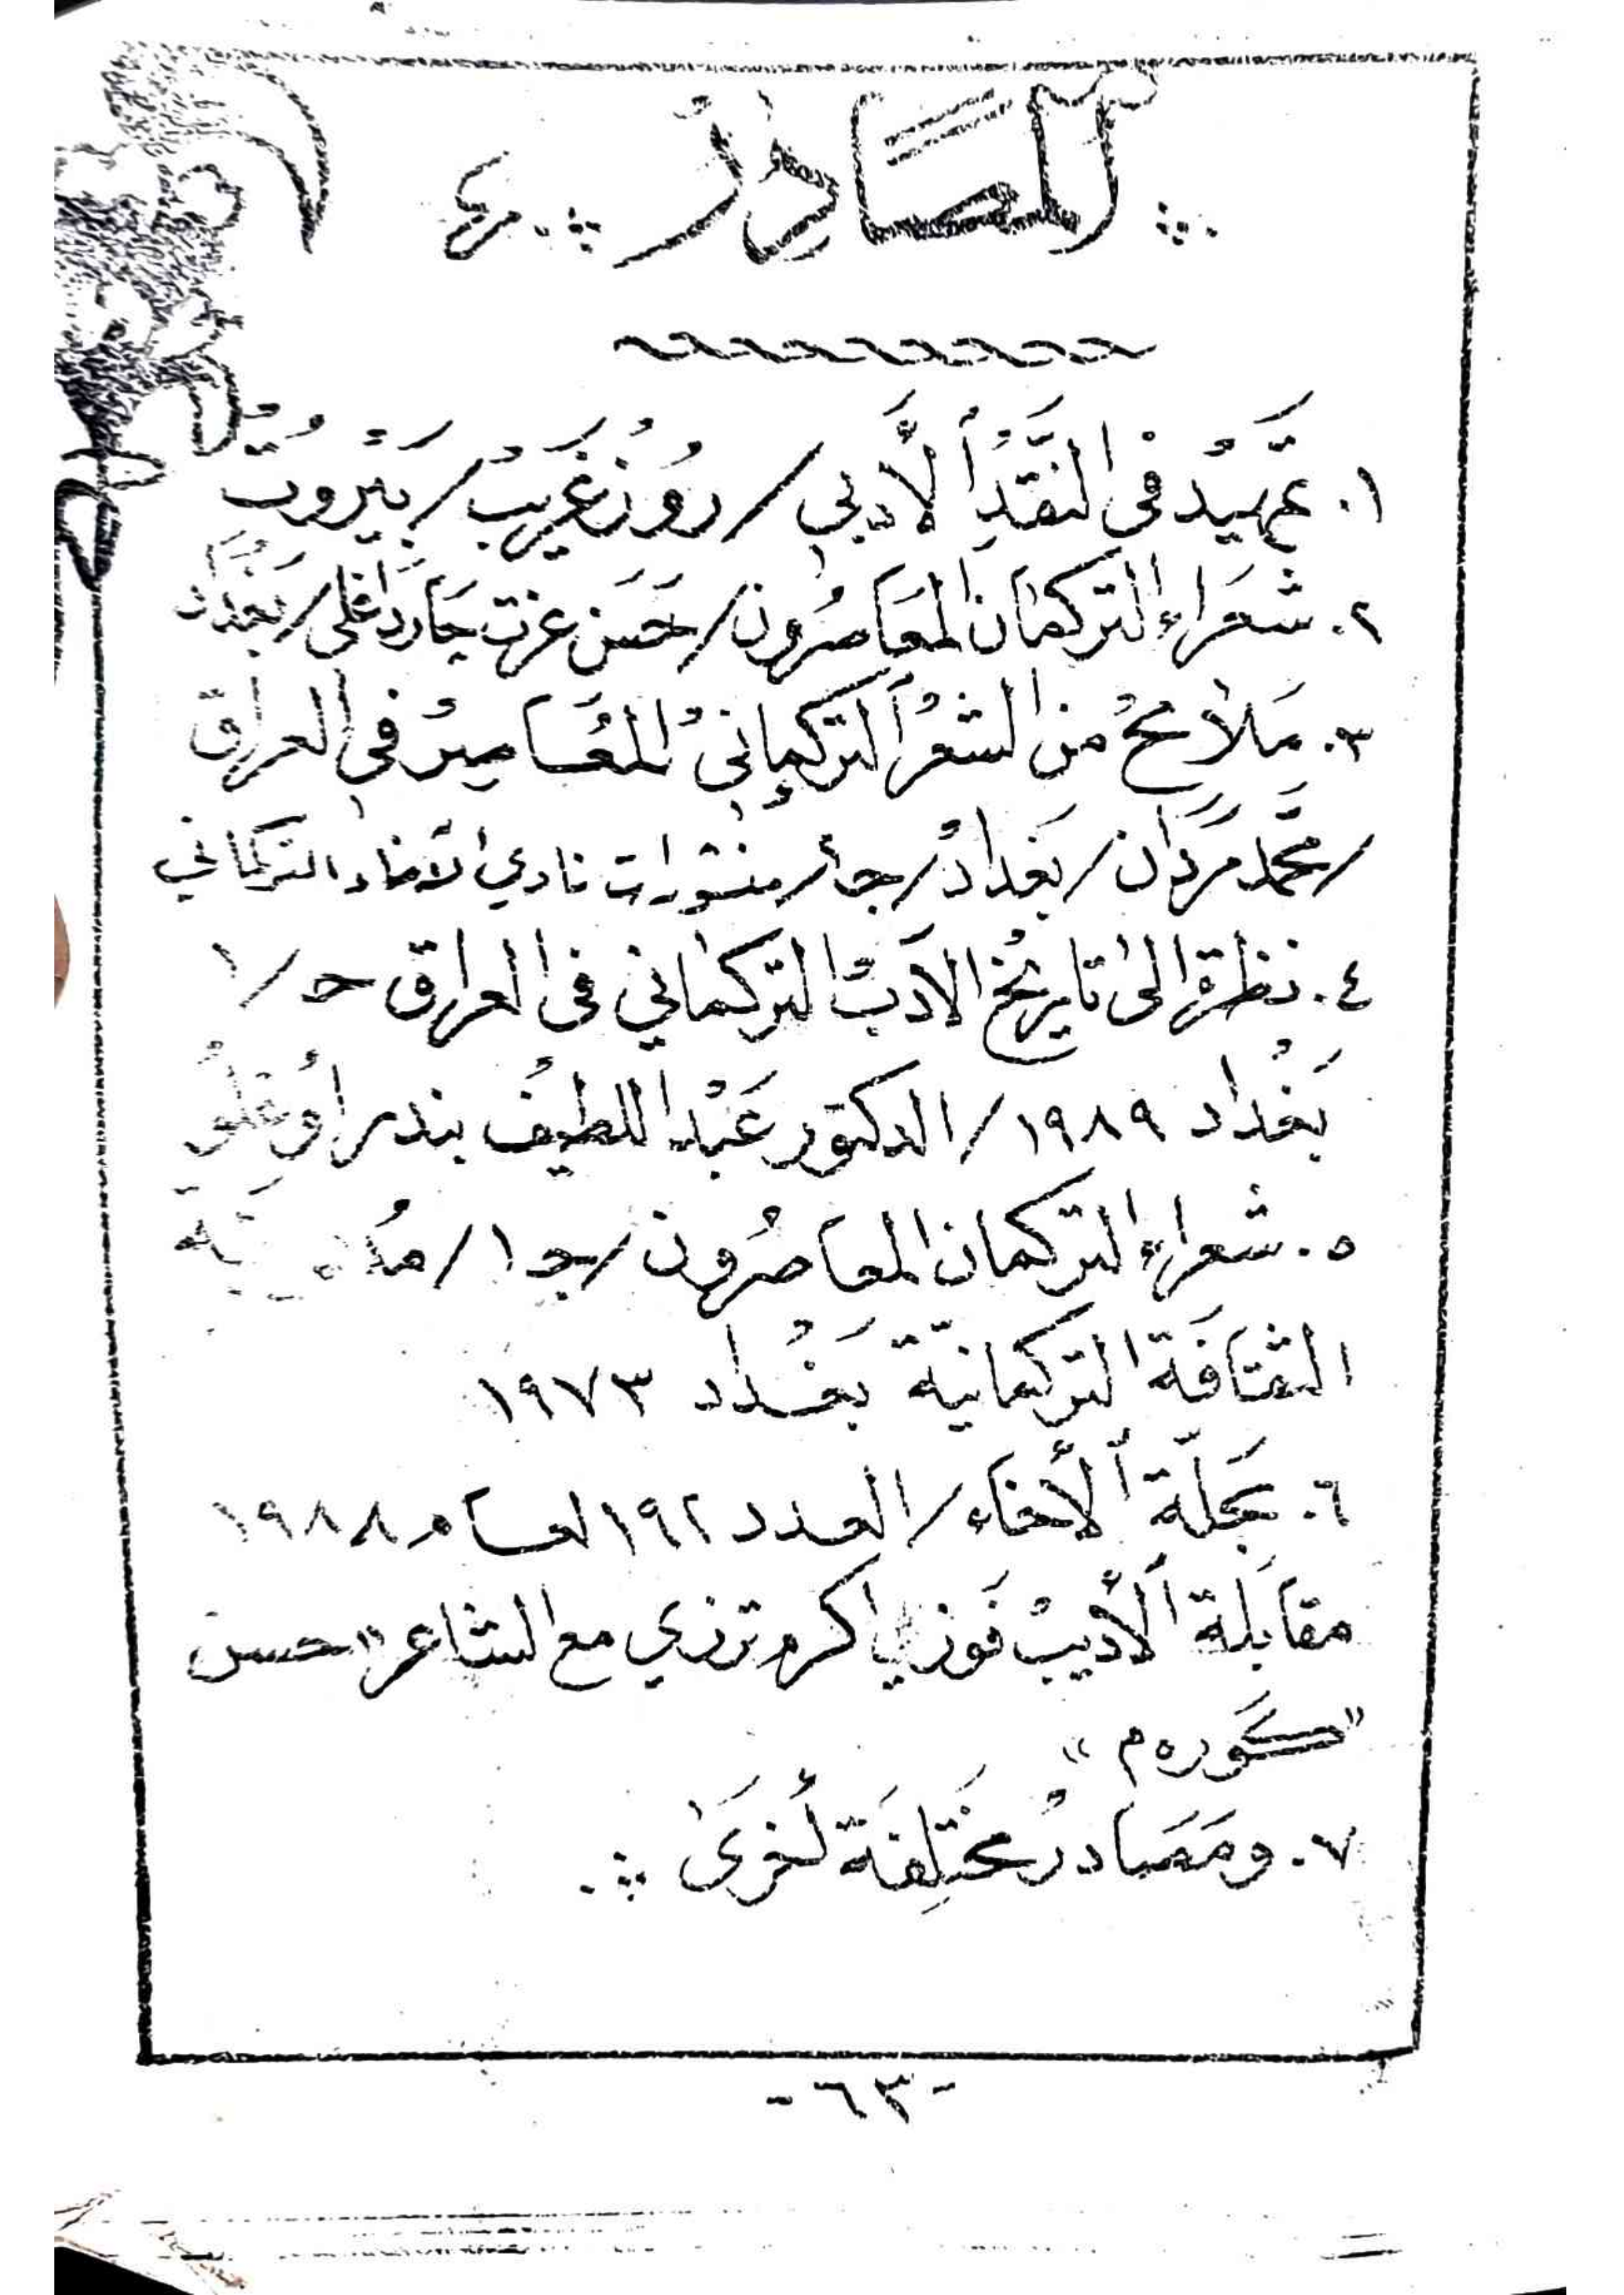 المصادر
١. تمهيد في النقد الأدبي / روز غريب / بيروت
٢. شعراء التركمان المعاصرون / حسن عزت جارداغلى / بغداد
٣. ملامح من الشعر التركماني المعاصر في العراق
/ محمد مردان / بغداد / جـ١ / منشورات نادي الأخاء التركماني
٤. نظرة الى تاريخ الادب التركماني في العراق جـ / ١
بغداد ١٩٨٩ / الدكتور عبد اللطيف بندر اوغلو
٥. شعراء التركمان المعاصرون / جـ ١ /
الثقافة التركمانية بغداد ١٩٧٣
٦. مجلة الأخاء / العدد ١٩٢ لعام ١٩٨٨
مقابلة الأديب فوزي اكرم ترزي مع الشاعر "حسن
"گوره م"
٧. ومصادر مختلفة أخرى
- ٦٣ -